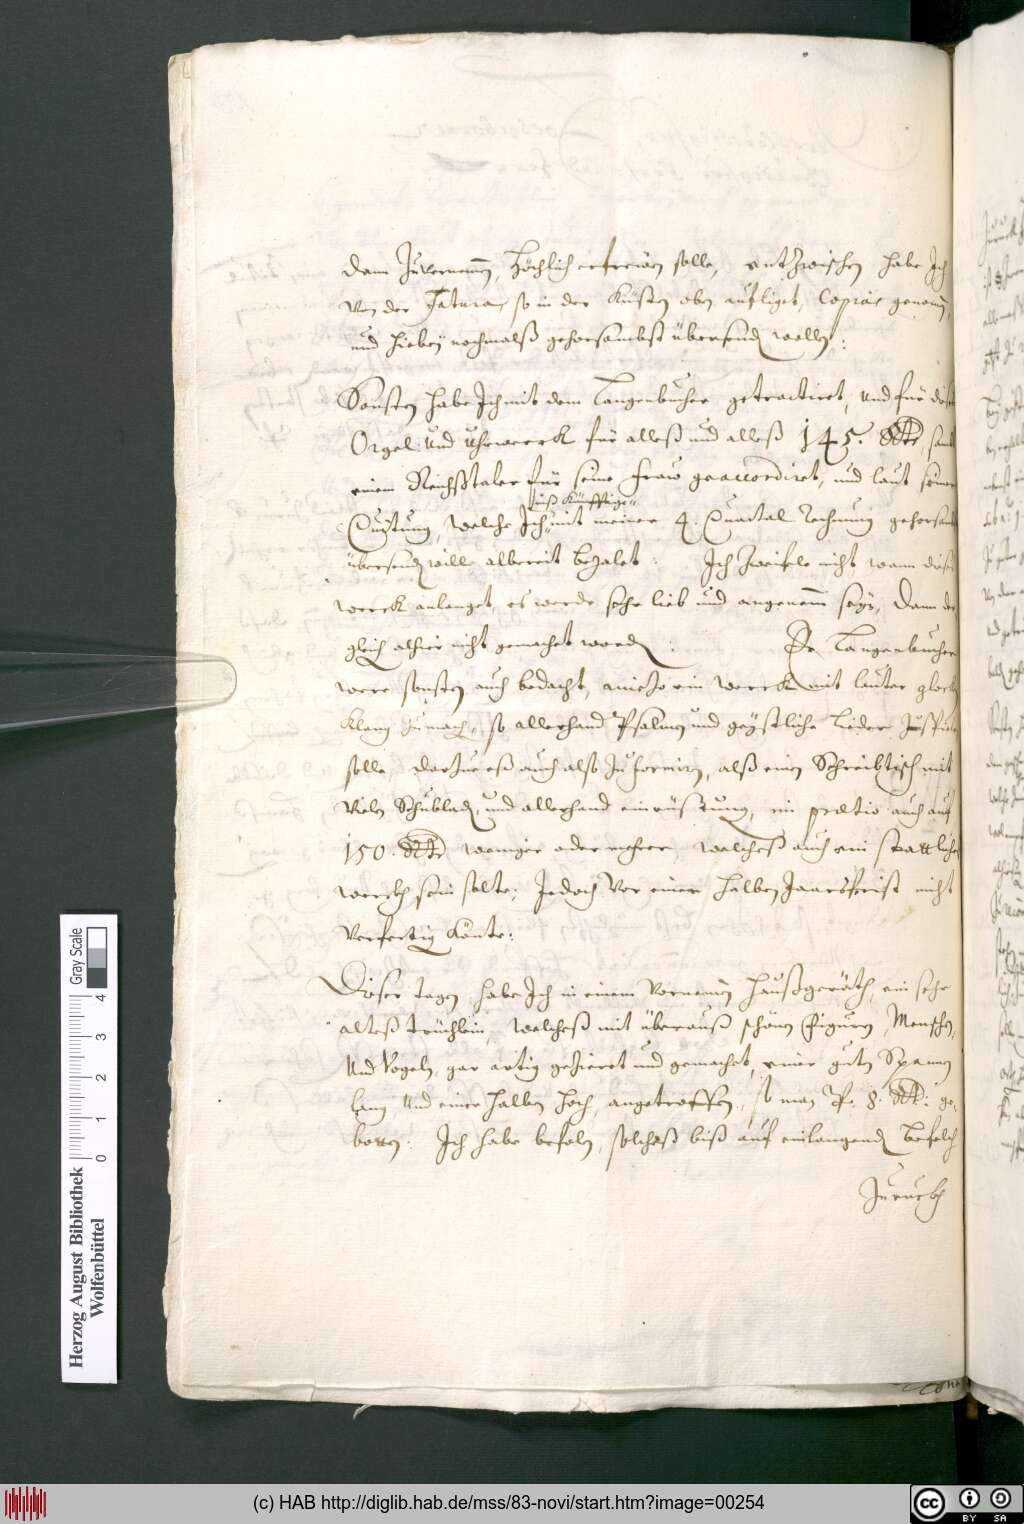 dann Zuvernemmen, höchlich erfrewen solle, entZwischen habe Ich
von der Factura, so in der Küsten oben aufligt, Copias genommen,
und hiebey nochmalß gehorsambst übersenden wollen:
Sonsten habe Ich mit dem Langenbucher getractiret, und für diß
Orgel: und Uhrwerck für alles und alles 145. Rthr, sambt
einem Reichßtaler für seine Fraw geaccordiret, und laut seiner
biß Künfftige
Quitung, welche Ich mit meiner 4. Quartal Rechnung gehorsambst
übersenden will albereit bezalet: Ich Zweifele nicht wann dieses
werck anlanget, es werde sehr lieb und angenemm seyn, dann der
gleich alhier nicht gemachet worden: Der Langenbucher
were sonsten auch bedacht, annoch ein werck mit lauter glocken
Klang Zumachen, so allerhand Psalmen und geystliche Lieder Zuspielen
solle, darZue eß auch also Zuformiren, alß einen Schreibtisch mit
vielen Schubladen, und allerhand einrüstung, im pretio auch auf
150. Rthr, weniger oder mehrer, welcheß auch ein stattliches
werckh sein solte; Jedoch vor einer halben Jaarsfrist nicht
verfertigen könte:
Dieser tagen habe Ich in einem vornemmen Haußgeräth, ein sehr
alteß trüchlein, welcheß mit überauß schönen Figuren, Menschen,
und Vogeln, gar artig gezieret und gemachet, einer guten Spannen
lang und einer halben hoch, angetroffen, so man P. 8. Rthr: ge-
botten: Ich habe befolen, solcheß biß auf einlangenden befelch
Zuruckh
Herzog August Bibliothek
Wolfenbüttel
0 1 2 3 4
Gray Scale
(c) HAB http://diglib.hab.de/mss/83-novi/start.htm?image=00254
cc BY SA